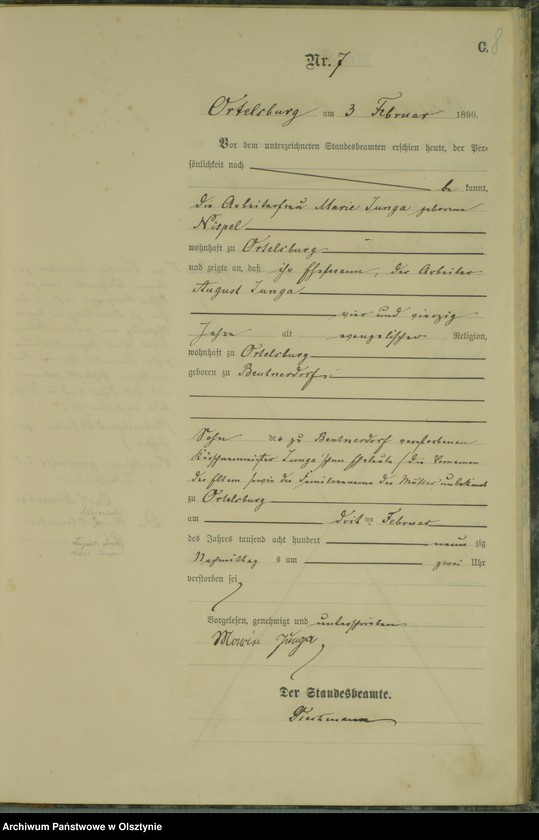 C. 8
Nr. 7
Ortelsburg am 3 Februar 1890.
Vor dem unterzeichneten Standesbeamten erschien heute, der Per-
sönlichkeit nach
be kannt,
die Arbeiterfrau Marie Junga geborene
Nispel
wohnhaft zu Ortelsburg
und zeigte an, daß ihr Ehemann, der Arbeiter
August Junga
vier und vierzig
Jahre alt evangelischer Religion,
wohnhaft zu Ortelsburg
geboren zu Beutnerdorf
Sohn des zu Beutnerdorf verstorbenen
Kürschnermeister Junga'schen Eheleute (die Vornamen
der Eltern sowie der Familienname der Mutter unbekannt
zu Ortelsburg
am dritten Februar
des Jahres tausend acht hundert neunzig
Nachmittags um zwei Uhr
verstorben sei
Vorgelesen, genehmigt und unterschrieben
Marie Junga
Der Standesbeamte.
Archiwum Państwowe w Olsztynie